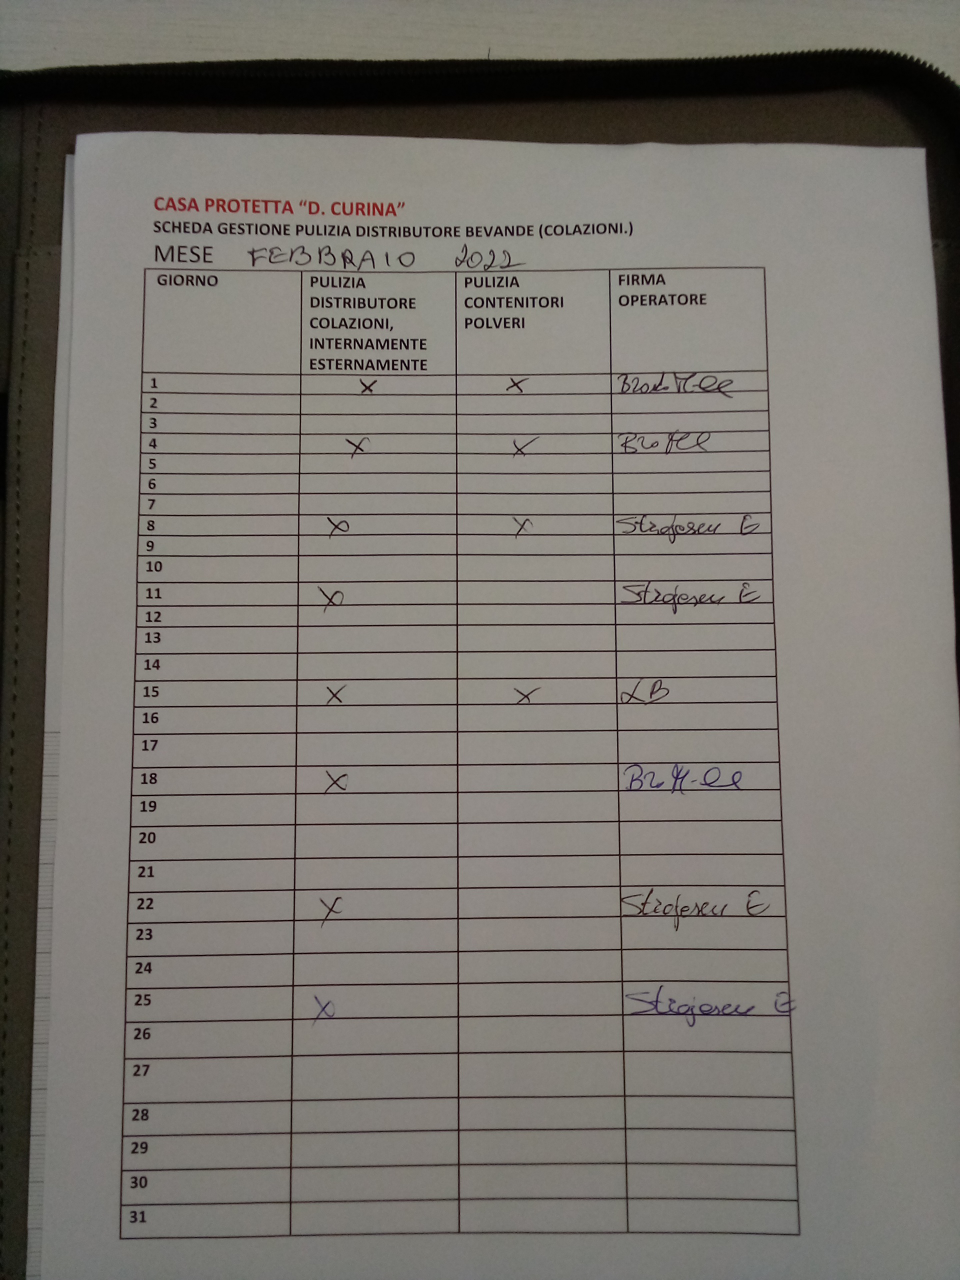 CASA PROTETTA “D. CURINA”
SCHEDA GESTIONE PULIZIA DISTRIBUTORE BEVANDE (COLAZIONI.)
MESE FEBBRAIO 2022
GIORNO
PULIZIA
DISTRIBUTORE
COLAZIONI,
INTERNAMENTE
ESTERNAMENTE
PULIZIA
CONTENITORI
POLVERI
FIRMA
OPERATORE
1 X X
2
3
4 X X
5
6
7
8 X X E
9
10
11 X E
12
13
14
15 X X LB
16
17
18 X
19
20
21
22 X E
23
24
25 X E
26
27
28
29
30
31